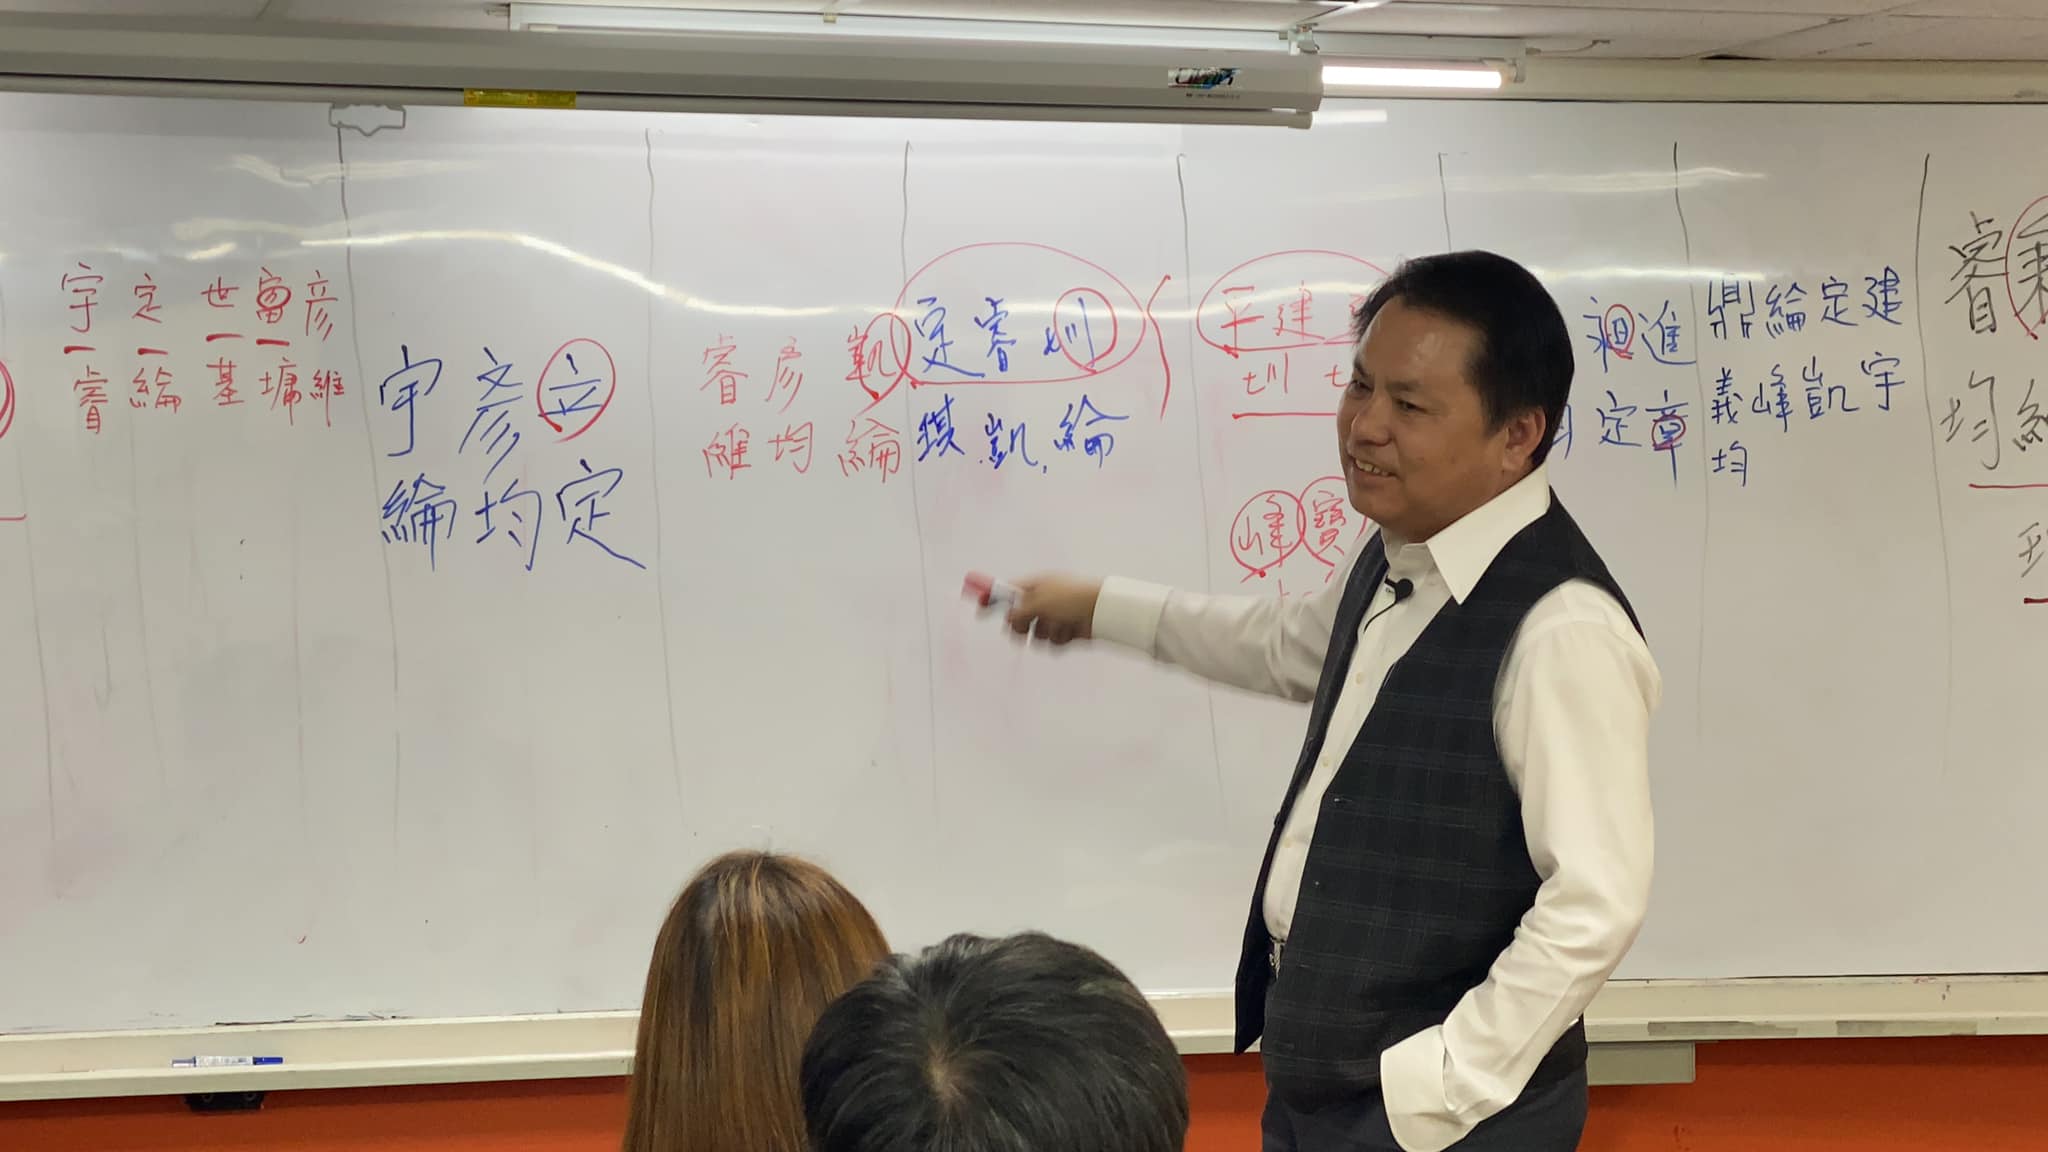 宇 定 世 富 彥
睿 綸 基 墉 維
宇 彥 立
綸 均 定
睿 彥 凱
維 均 綸
定 睿 圳
錤 凱 綸
平 建
圳
峰 寶
進
定 章
鼎 綸 定 建
義 峰 凱 宇
均
睿
均